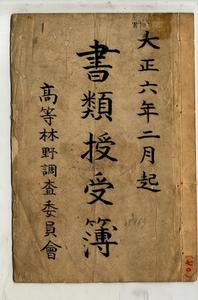 大正六年二月起
書類授受簿
高等林野調査委員會